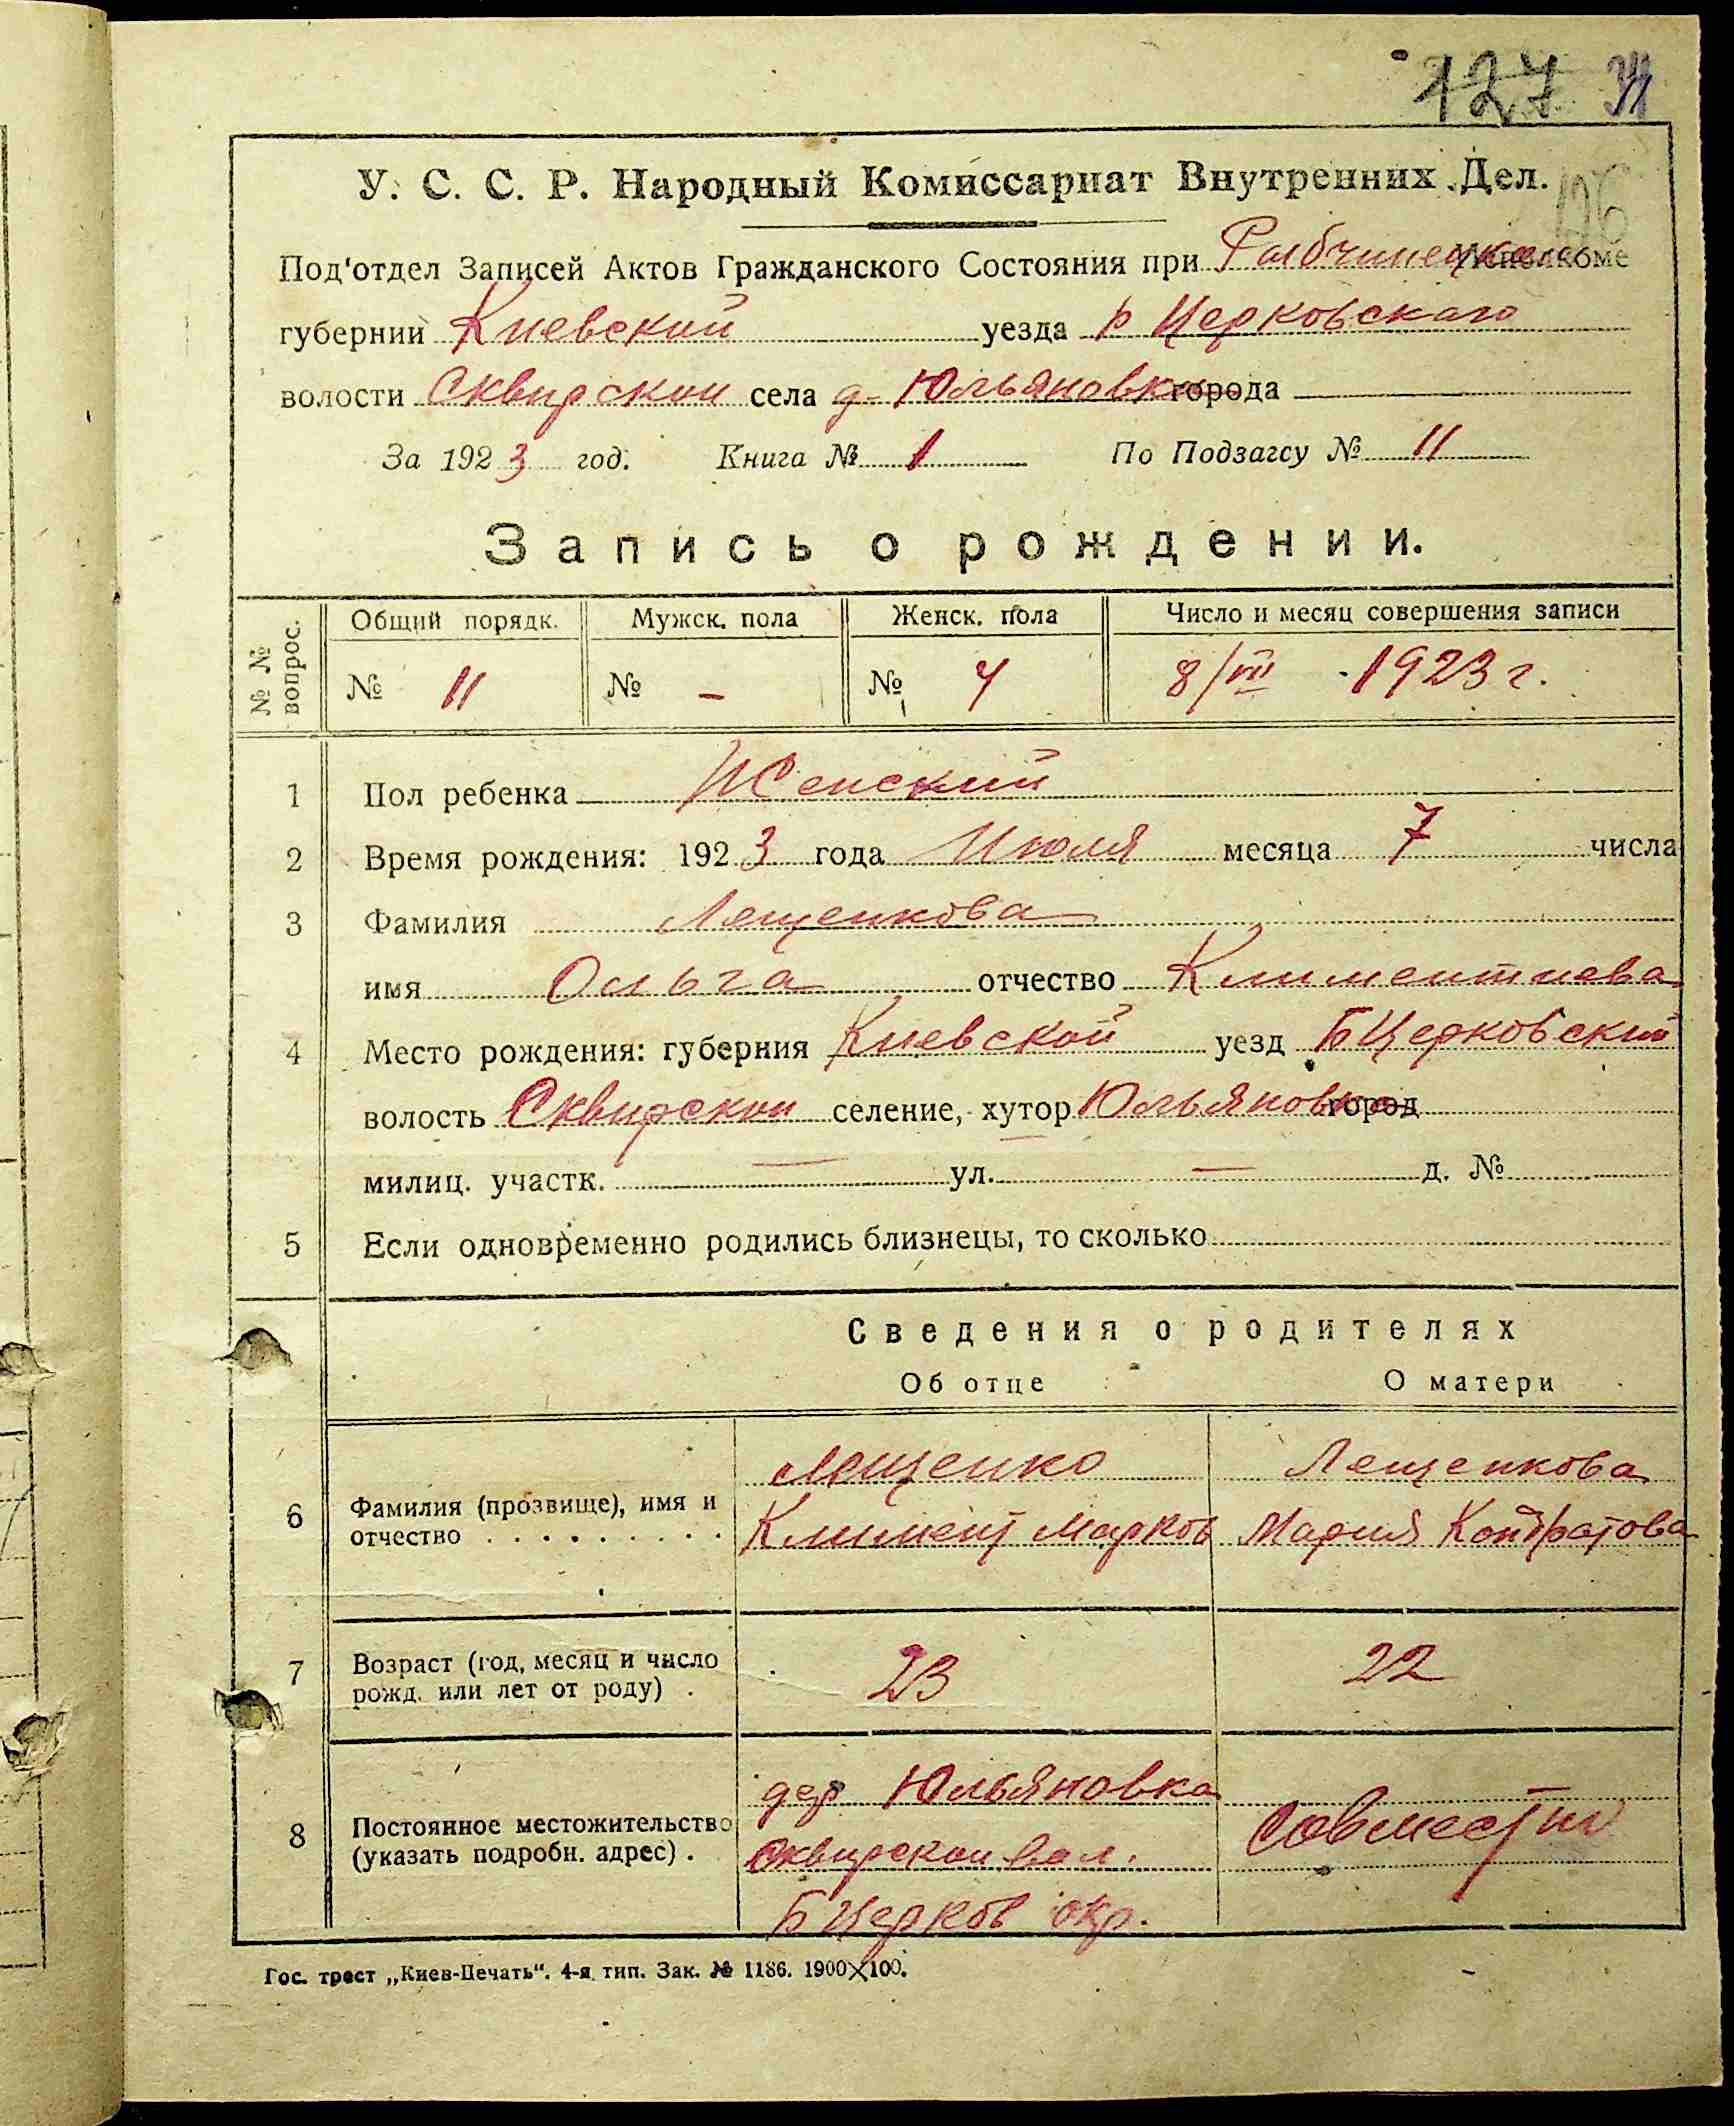 127
126
У. С. С. Р. Народный Комиссариат Внутренних Дел.
Под'отдел Записей Актов Гражданского Состояния при Исполкоме
губернии Киевской уезда Церковского
волости Сквирской села д. Юльяновка города
За 1923 год. Книга № 1 По Подзагсу № 11
Запись о рождении.
№ № вопрос. Общий порядк. Мужск. пола Женск. пола Число и месяц совершения записи
№ 11 № - № 4 8/VII 1923 г.
1 Пол ребенка Женский
2 Время рождения: 1923 года Июля месяца 7 числа
3 Фамилия Лещенкова
имя Ольга отчество Климентиева
4 Место рождения: губерния Киевской уезд БЦерковский
волость Сквирской селение, хутор Юльяновка город
милиц. участк. — ул. — д. №
5 Если одновременно родились близнецы, то сколько
Сведения о родителях
Об отце О матери
Лещенко Лещенкова
6 Фамилия (прозвище), имя и отчество Климент Марков Мария Кондратова
7 Возраст (год, месяц и число рожд. или лет от роду) 23 22
дер Юльяновка
8 Постоянное местожительство (указать подробн. адрес) Сквирской вол. Совместно
БЦерков окр.
Гос. трест „Киев-Печать“. 4-я тип. Зак. № 1186. 1900×100.